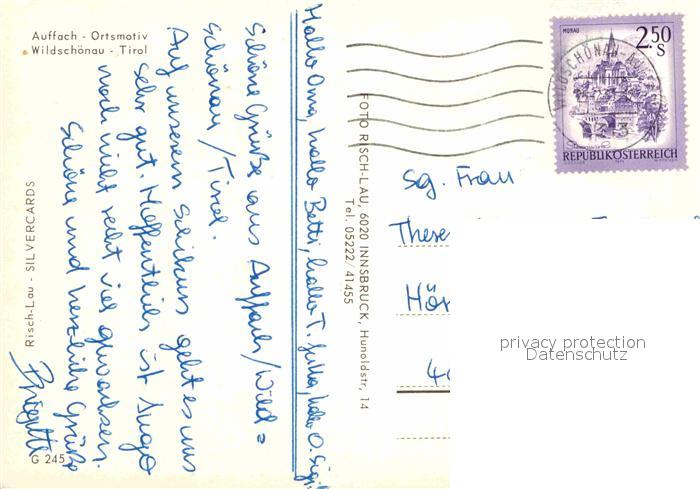 Auffach - Ortsmotiv
Wildschönau - Tirol
Hallo Oma, hallo Betti, hallo T. Jutta, hallo O. Sigi,
Schöne Grüße aus Auffach/Wild=
schönau/Tirol.
Auf unserem Schikurs geht es uns
sehr gut. Hoffentlich ist Ingo
noch nicht recht viel gewachsen.
Schöne und herzliche Grüße
Brigitte
Risch-Lau - SILVERCARDS
G 245
FOTO RISCH-LAU, 6020 INNSBRUCK, Hunoldstr. 14
Tel. 05222/41455
MURAU
2.50
S
REPUBLIK ÖSTERREICH
WILDSCHÖNAU-AUFF
Sg. Frau
There
Hör
privacy protection
Datenschutz